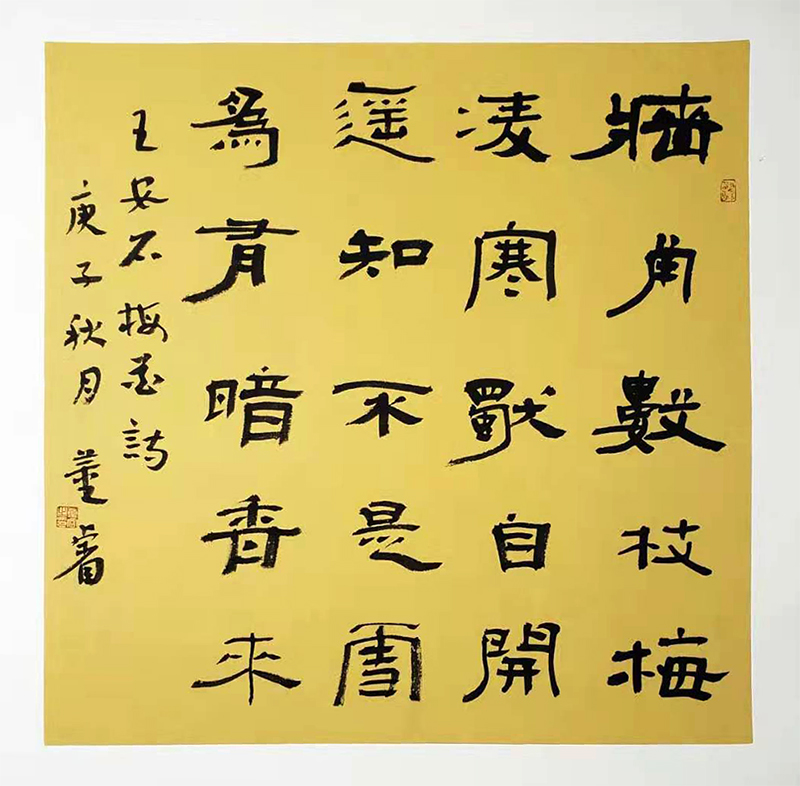 牆角數枝梅
凌寒獨自開
遥知不是雪
為有暗香來
王安石梅花詩
庚子秋月 董睿